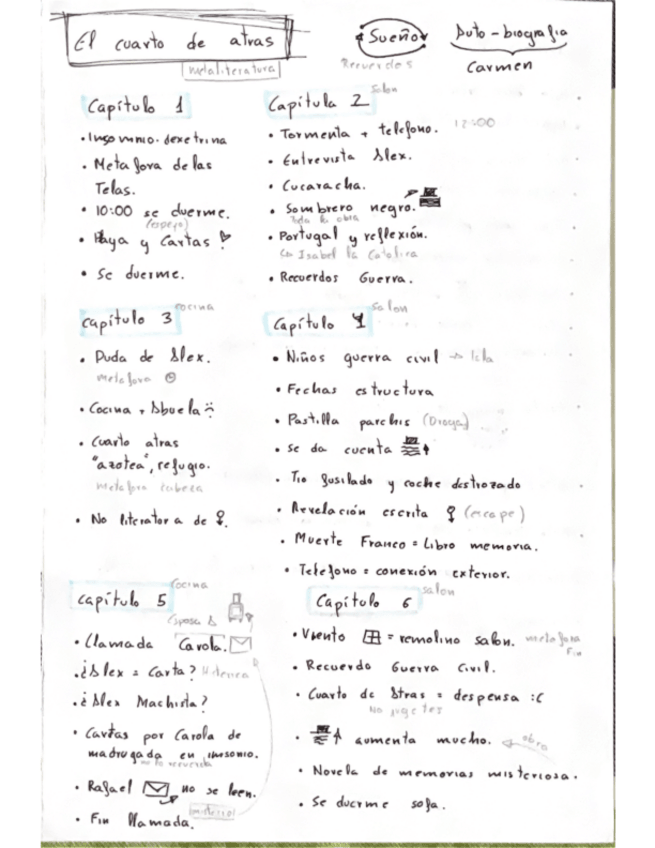 El cuarto de atras
Sueño
Auto-biografia
metaliteratura
Recuerdos
Carmen
Capítulo 1
• Insomnio. dexetrina
• Metafora de las
Telas.
• 10:00 se duerme.
(espejo)
• Playa y Cartas
• Se duerme.
salon
Capítulo 2
• Tormenta + telefono. 12:00
• Entrevista Alex.
• Cucaracha.
• Sombrero negro.
Toda la obra
• Portugal y reflexión.
↳ Isabel la Catolica
• Recuerdos Guerra.
cocina
capítulo 3
• Duda de Alex.
metafora
• Cocina + Abuela
• Cuarto atras
"azotea", refugio.
metafora cabeza
• No literatora de ♀.
Salon
Capítulo 4
• Niños guerra civil → Isla
• Fechas estructura
• Pastilla parchis (Droga)
• Se da cuenta ↑
• Tio fusilado y coche destrozado
• Revelación escrita ♀ (escape)
• Muerte Franco = Libro memoria.
• Telefono = conexión exterior.
Cocina
capítulo 5
Esposa A
• Llamada Carola.
• ¿Alex = Carta?
• ¿Alex Machista?
• Cartas por Carola de
madrugada en insomnio.
no lo recuerda
• Rafael no se leen.
• Fin llamada.
salon
Capítulo 6
• Viento = remolino salon. metafora
Fin
• Recuerdo Guerra Civil.
• Cuarto de Atras = despensa :(
No jugetes
• ↑ aumenta mucho. obra
• Novela de memorias misteriosa.
• Se duerme sofa.